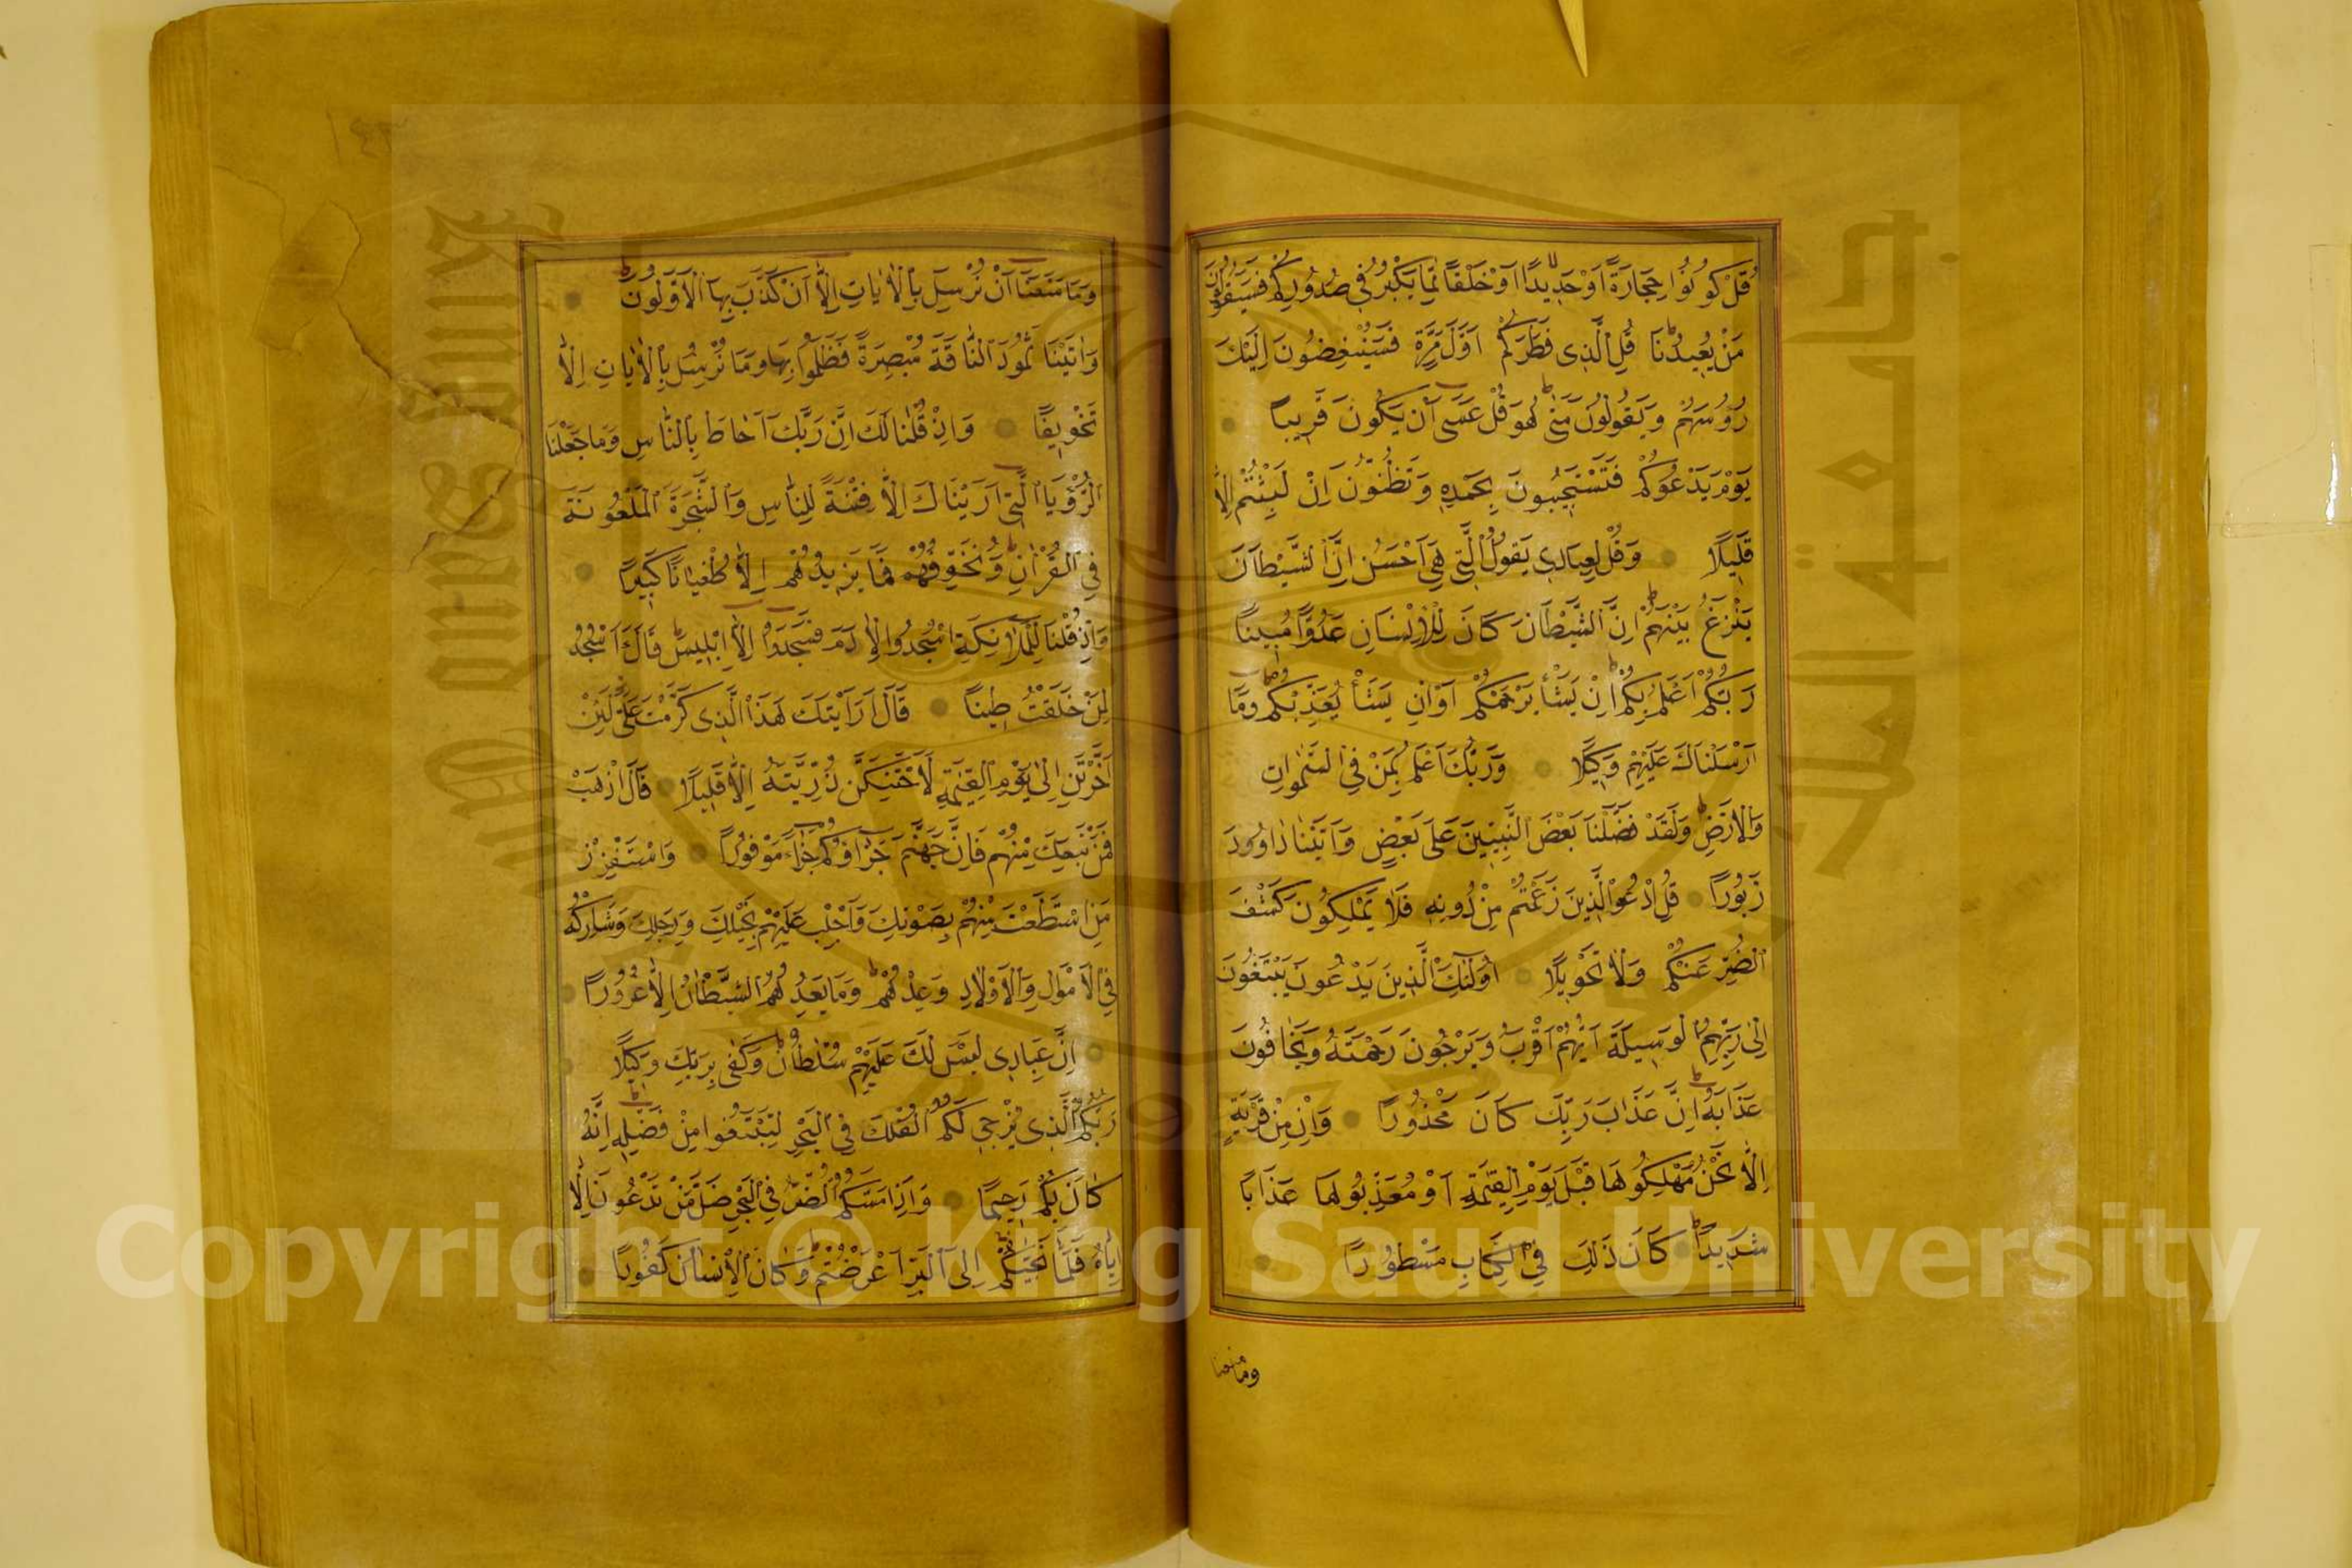 قُلْ كُونُوا حِجَارَةً اَوْ حَدِيدًا اَوْ خَلْقًا مِمَّا يَكْبُرُ فِي صُدُورِكُمْ فَسَيَقُولُونَ
مَنْ يُعِيدُنَا قُلِ الَّذِي فَطَرَكُمْ اَوَّلَ مَرَّةٍ فَسَيُنْغِضُونَ اِلَيْكَ
رُؤُسَهُمْ وَيَقُولُونَ مَتٰى هُوَ قُلْ عَسٰى اَنْ يَكُونَ قَرِيبًا
يَوْمَ يَدْعُوكُمْ فَتَسْتَجِيبُونَ بِحَمْدِهِ وَتَظُنُّونَ اِنْ لَبِثْتُمْ اِلَّا
قَلِيلًا وَقُلْ لِعِبَادِي يَقُولُوا الَّتِي هِيَ اَحْسَنُ اِنَّ الشَّيْطَانَ
يَنْزَغُ بَيْنَهُمْ اِنَّ الشَّيْطَانَ كَانَ لِلْاِنْسَانِ عَدُوًّا مُبِينًا
رَبُّكُمْ اَعْلَمُ بِكُمْ اِنْ يَشَأْ يَرْحَمْكُمْ اَوْ اِنْ يَشَأْ يُعَذِّبْكُمْ وَمَا
اَرْسَلْنَاكَ عَلَيْهِمْ وَكِيلًا وَرَبُّكَ اَعْلَمُ بِمَنْ فِي السَّمٰوَاتِ
وَالْاَرْضِ وَلَقَدْ فَضَّلْنَا بَعْضَ النَّبِيِّينَ عَلٰى بَعْضٍ وَاٰتَيْنَا دَاوُودَ
زَبُورًا قُلِ ادْعُوا الَّذِينَ زَعَمْتُمْ مِنْ دُونِهِ فَلَا يَمْلِكُونَ كَشْفَ
الضُّرِّ عَنْكُمْ وَلَا تَحْوِيلًا اُولٰئِكَ الَّذِينَ يَدْعُونَ يَبْتَغُونَ
اِلٰى رَبِّهِمُ الْوَسِيلَةَ اَيُّهُمْ اَقْرَبُ وَيَرْجُونَ رَحْمَتَهُ وَيَخَافُونَ
عَذَابَهُ اِنَّ عَذَابَ رَبِّكَ كَانَ مَحْذُورًا وَاِنْ مِنْ قَرْيَةٍ
اِلَّا نَحْنُ مُهْلِكُوهَا قَبْلَ يَوْمِ الْقِيٰمَةِ اَوْ مُعَذِّبُوهَا عَذَابًا
شَدِيدًا كَانَ ذٰلِكَ فِي الْكِتَابِ مَسْطُورًا
وما منعنا
١٤٣
وَمَا مَنَعَنَا اَنْ نُرْسِلَ بِالْاٰيَاتِ اِلَّا اَنْ كَذَّبَ بِهَا الْاَوَّلُونَ
وَاٰتَيْنَا ثَمُودَ النَّاقَةَ مُبْصِرَةً فَظَلَمُوا بِهَا وَمَا نُرْسِلُ بِالْاٰيَاتِ اِلَّا
تَخْوِيفًا وَاِذْ قُلْنَا لَكَ اِنَّ رَبَّكَ اَحَاطَ بِالنَّاسِ وَمَا جَعَلْنَا
الرُّؤْيَا الَّتِي اَرَيْنَاكَ اِلَّا فِتْنَةً لِلنَّاسِ وَالشَّجَرَةَ الْمَلْعُونَةَ
فِي الْقُرْاٰنِ وَنُخَوِّفُهُمْ فَمَا يَزِيدُهُمْ اِلَّا طُغْيَانًا كَبِيرًا
وَاِذْ قُلْنَا لِلْمَلٰئِكَةِ اسْجُدُوا لِاٰدَمَ فَسَجَدُوا اِلَّا اِبْلِيسَ قَالَ ءَاَسْجُدُ
لِمَنْ خَلَقْتَ طِينًا قَالَ اَرَاَيْتَكَ هٰذَا الَّذِي كَرَّمْتَ عَلَيَّ لَئِنْ
اَخَّرْتَنِ اِلٰى يَوْمِ الْقِيٰمَةِ لَاَحْتَنِكَنَّ ذُرِّيَّتَهُ اِلَّا قَلِيلًا قَالَ اذْهَبْ
فَمَنْ تَبِعَكَ مِنْهُمْ فَاِنَّ جَهَنَّمَ جَزَاؤُكُمْ جَزَاءً مَوْفُورًا وَاسْتَفْزِزْ
مَنِ اسْتَطَعْتَ مِنْهُمْ بِصَوْتِكَ وَاَجْلِبْ عَلَيْهِمْ بِخَيْلِكَ وَرَجِلِكَ وَشَارِكْهُمْ
فِي الْاَمْوَالِ وَالْاَوْلَادِ وَعِدْهُمْ وَمَا يَعِدُهُمُ الشَّيْطَانُ اِلَّا غُرُورًا
اِنَّ عِبَادِي لَيْسَ لَكَ عَلَيْهِمْ سُلْطَانٌ وَكَفٰى بِرَبِّكَ وَكِيلًا
رَبُّكُمُ الَّذِي يُزْجِي لَكُمُ الْفُلْكَ فِي الْبَحْرِ لِتَبْتَغُوا مِنْ فَضْلِهِ اِنَّهُ
كَانَ بِكُمْ رَحِيمًا وَاِذَا مَسَّكُمُ الضُّرُّ فِي الْبَحْرِ ضَلَّ مَنْ تَدْعُونَ اِلَّا
اِيَّاهُ فَلَمَّا نَجّٰيكُمْ اِلَى الْبَرِّ اَعْرَضْتُمْ وَكَانَ الْاِنْسَانُ كَفُورًا
King Saud University
جامعة الملك
Copyright © King Saud University